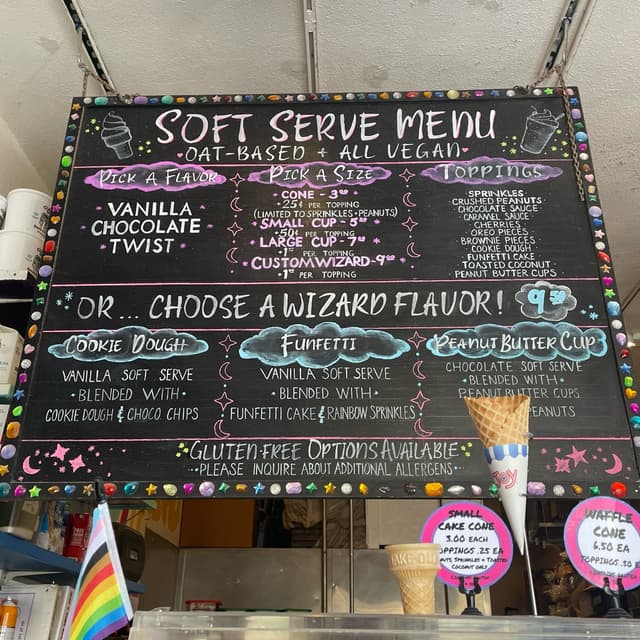 SOFT SERVE MENU
OAT-BASED + ALL VEGAN
PICK A FLAVOR
VANILLA
CHOCOLATE
TWIST
PICK A SIZE
CONE - 3⁰⁰
25¢ PER TOPPING
(LIMITED TO SPRINKLES + PEANUTS)
SMALL CUP - 5⁰⁰
50¢ PER TOPPING
LARGE CUP - 7⁰⁰
1⁰⁰ PER TOPPING
CUSTOM WIZARD - 9⁰⁰
1⁰⁰ PER TOPPING
TOPPINGS
SPRINKLES
CRUSHED PEANUTS
CHOCOLATE SAUCE
CARAMEL SAUCE
CHERRIES
OREO PIECES
BROWNIE PIECES
COOKIE DOUGH
FUNFETTI CAKE
TOASTED COCONUT
PEANUT BUTTER CUPS
OR... CHOOSE A WIZARD FLAVOR! 9⁵⁰
COOKIE DOUGH
VANILLA SOFT SERVE
BLENDED WITH
COOKIE DOUGH & CHOCO CHIPS
FUNFETTI
VANILLA SOFT SERVE
BLENDED WITH
FUNFETTI CAKE & RAINBOW SPRINKLES
PEANUT BUTTER CUP
CHOCOLATE SOFT SERVE
BLENDED WITH
PEANUT BUTTER CUPS
PEANUTS
GLUTEN-FREE OPTIONS AVAILABLE
PLEASE INQUIRE ABOUT ADDITIONAL ALLERGENS
JOY
SMALL
CAKE CONE
3.00 EACH
TOPPINGS .25 EA
COCONUT ONLY
WAFFLE
CONE
6.50 EA
TOPPINGS .50